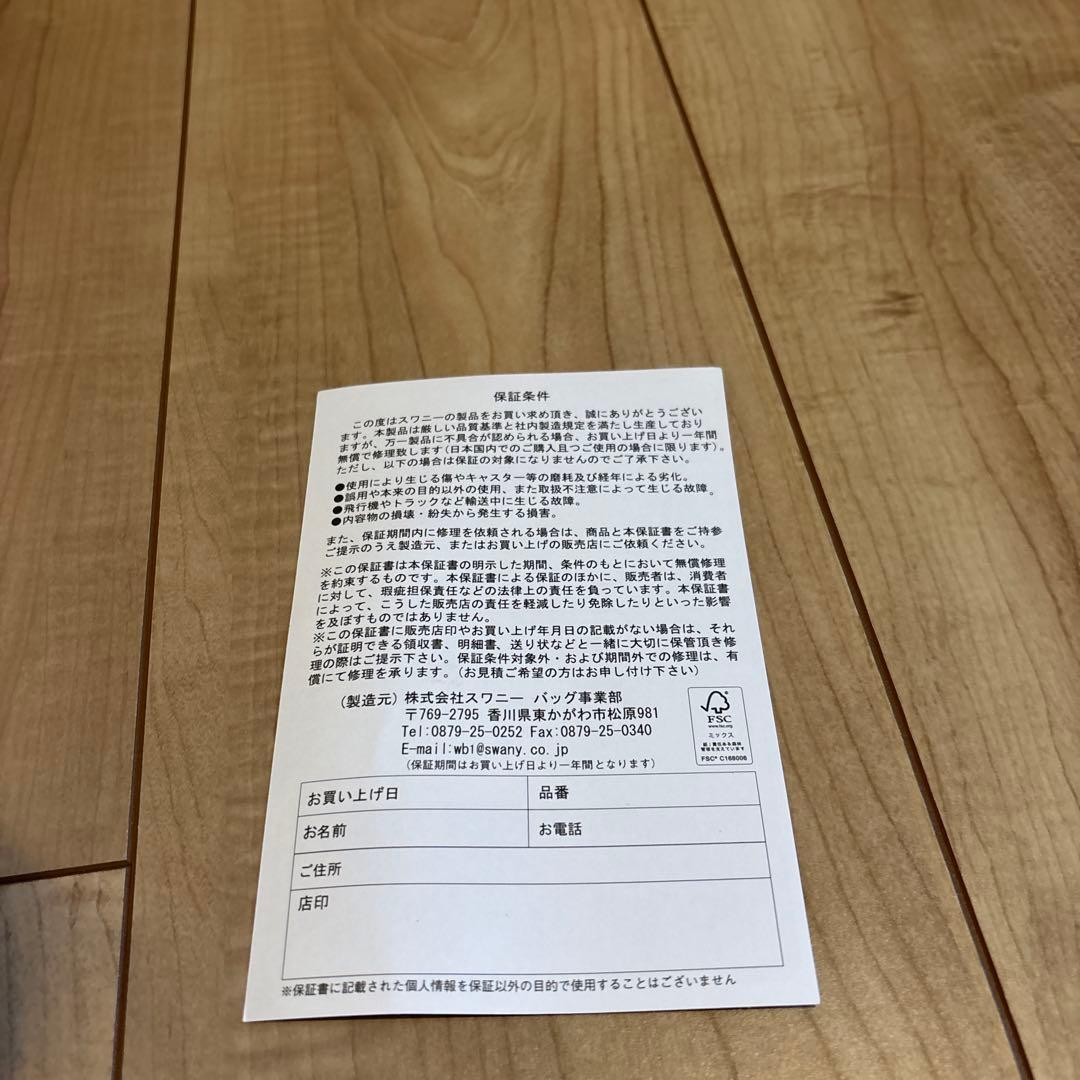 保証条件
この度はスワニーの製品をお買い求め頂き、誠にありがとうござい
ます。本製品は厳しい品質基準と社内製造規定を満たし生産しており
ますが、万一製品に不具合が認められる場合、お買い上げ日より一年間
無償で修理致します(日本国内でのご購入且つご使用の場合に限ります)。
ただし、以下の場合は保証の対象になりませんのでご了承下さい。
●使用により生じる傷やキャスター等の磨耗及び経年による劣化。
●誤用や本来の目的以外の使用、また取扱不注意によって生じる故障。
●飛行機やトラックなど輸送中に生じる故障。
●内容物の損壊・紛失から発生する損害。
また、保証期間内に修理を依頼される場合は、商品と本保証書をご持参
ご提示のうえ製造元、またはお買い上げの販売店にご依頼ください。
※この保証書は本保証書の明示した期間、条件のもとにおいて無償修理
を約束するものです。本保証書による保証のほかに、販売者は、消費者
に対して、瑕疵担保責任などの法律上の責任を負っています。本保証書
によって、こうした販売店の責任を軽減したり免除したりといった影響
を及ぼすものではありません。
※この保証書に販売店印やお買い上げ年月日の記載がない場合は、それ
らが証明できる領収書、明細書、送り状などと一緒に大切に保管頂き修
理の際はご提示下さい。保証条件対象外・および期間外での修理は、有
償にて修理を承ります。(お見積ご希望の方はお申し付け下さい)
(製造元) 株式会社スワニー バッグ事業部
〒769-2795 香川県東かがわ市松原981
Tel:0879-25-0252 Fax:0879-25-0340
E-mail:wb1@swany.co.jp
(保証期間はお買い上げ日より一年間となります)
FSC
www.fsc.org
ミックス
紙|責任ある森林
管理を支えています
FSC® C168006
お買い上げ日 品番
お名前 お電話
ご住所
店印
※保証書に記載された個人情報を保証以外の目的で使用することはございません